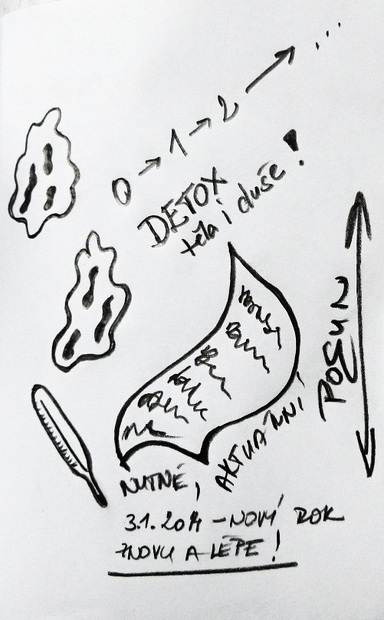 0 → 1 → 2 → ...
DETOX
těla i duše!
POSUN
NUTNÉ, AKTUÁLNÍ
- NOVÝ ROK
ZNOVU A LÉPE!